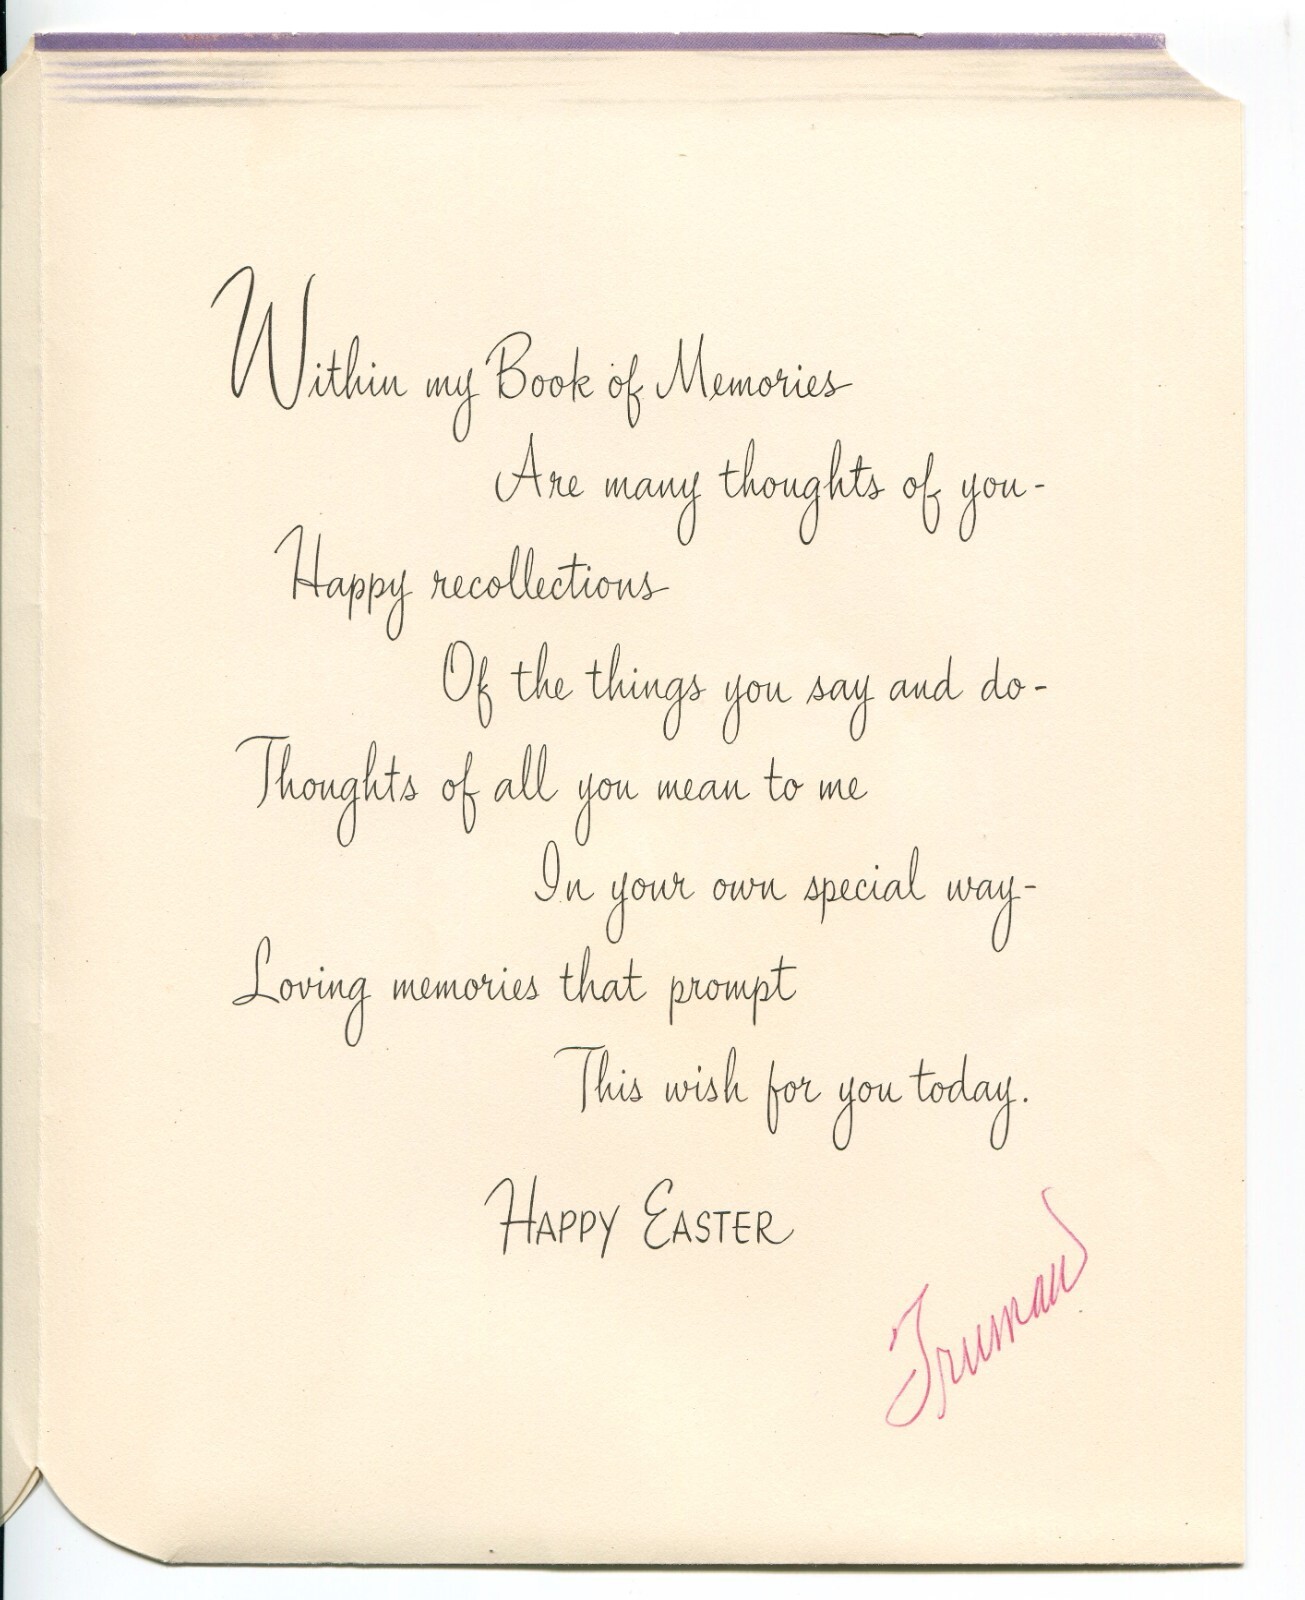 Within my Book of Memories
Are many thoughts of you-
Happy recollections
Of the things you say and do-
Thoughts of all you mean to me
In your own special way-
Loving memories that prompt
This wish for you today.
HAPPY EASTER
Truman